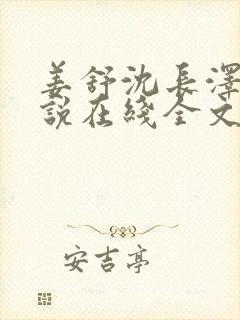 姜舒沈長澤
說在綫全文
安吉亭